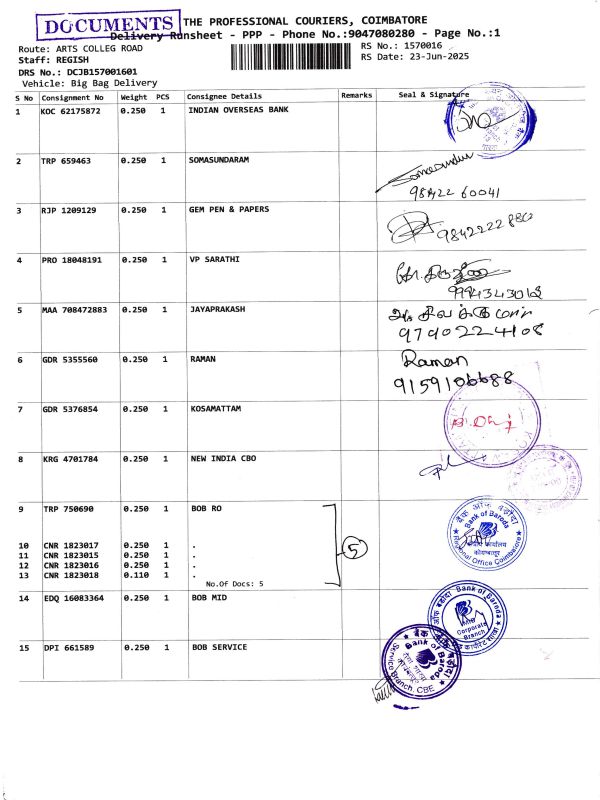 DOCUMENTS
THE PROFESSIONAL COURIERS, COIMBATORE
Delivery Runsheet - PPP - Phone No.:9047080280 - Page No.:1
Route: ARTS COLLEG ROAD
RS No.: 1570016
Staff: REGISH
RS Date: 23-Jun-2025
DRS No.: DCJB157001601
Vehicle: Big Bag Delivery
S No Consignment No Weight PCS Consignee Details Remarks Seal & Signature
1 KOC 62175872 0.250 1 INDIAN OVERSEAS BANK
2 TRP 659463 0.250 1 SOMASUNDARAM
Somasundar
98422 60041
3 RJP 1209129 0.250 1 GEM PEN & PAPERS
4 PRO 18048191 0.250 1 VP SARATHI
9994343012
5 MAA 708472883 0.250 1 JAYAPRAKASH
9790224108
6 GDR 5355560 0.250 1 RAMAN Raman
9159106688
7 GDR 5376854 0.250 1 KOSAMATTAM
8 KRG 4701784 0.250 1 NEW INDIA CBO
9 TRP 750690 0.250 1 BOB RO
बैंक ऑफ़ बड़ौदा
Bank of Baroda
क्षेत्रीय कार्यालय
कोयम्बतूर
Regional Office Coimbatore
10 CNR 1823017 0.250 1 .
11 CNR 1823015 0.250 1 . 5
12 CNR 1823016 0.250 1 .
13 CNR 1823018 0.110 1 .
No.Of Docs: 5
14 EDQ 16083364 0.250 1 BOB MID
बैंक ऑफ़ बड़ौदा Bank of Baroda
Corporate
Branch
15 DPI 661589 0.250 1 BOB SERVICE
बैंक ऑफ़ बड़ौदा
Bank of Baroda
Service Branch, CBE